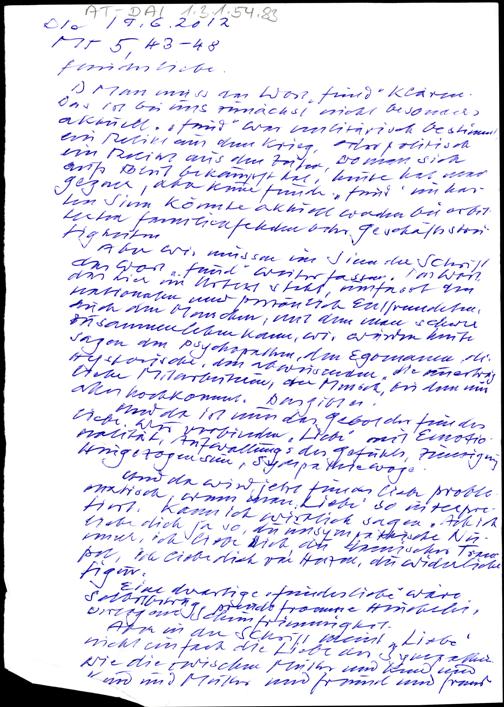 AT-DAI 1.3.1.54.83
Die 19.6.2012
Mt 5,43-48
Feindesliebe.
Man muss das Wort "Feind" klären.
Das ist bei uns zunächst nicht besonders
aktuell. "Feind" war militärisch bestimmt
ein Relikt aus dem Krieg, oder politisch
ein Relikt aus den Zeiten, wo man sich
aufs Blut bekämpft hat, heute hat man
Gegner, aber keine Feinde. "Feind" im har-
ten Sinn könnte aktuell werden bei erbit-
terten Familienfehden oder Geschäftsstrei-
tigkeiten
Aber wir müssen im Sinn der Schrift
das Wort "Feind" weiter fassen. Das Wort
das hier im Urtext steht, umfasst den
nationalen und persönlich Entfremdeten,
auch den Menschen, mit dem man schwer
zusammenleben kann, wir würden heute
sagen den Psychopathen, den Egomanen, die
Hysterische, den abweisenden, die unerträg-
liche Mitarbeiterin, der Mensch, bei dem mir
alles hochkommt. Das gibt es.
Und da ist nun das Gebot der Feindes
liebe. Wir verbinden "Liebe" mit Emotio-
nalität, Aufwallung des Gefühls, Zuneigung
Hingezogensein, Sympathiewoge.
Und da wird jetzt Feindesliebe proble-
matisch, wenn man "Liebe" so interpre-
tiert. Kann ich wirklich sagen: Ach ich
liebe dich ja so, du unsympathische Nu-
mmer, ich liebe dich du
ich liebe dich von Herzen, du widerliche
Figur.
Eine derartige "Feindesliebe" wäre
Selbstbetrug, fromme Heuchelei,
Scheinfrömmigkeit.
Aber in der Schrift meint "Liebe"
nicht einfach die Liebe der Sympathie
wie die zwischen Mutter und Kind und
und Mutter und Freund und Freund